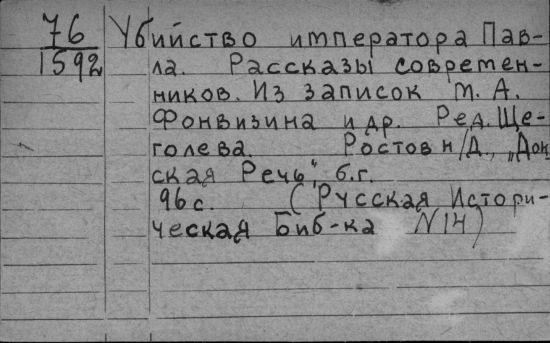 76 Убийство императора Пав-
1592 ла. Рассказы современ-
ников. Из записок М. А.
Фонвизина и др. Ред. Ще-
голева. Ростов н/Д., „Дон
ская Речь", б.г.
96 с. (Русская Истори-
ческая Биб-ка N 14)